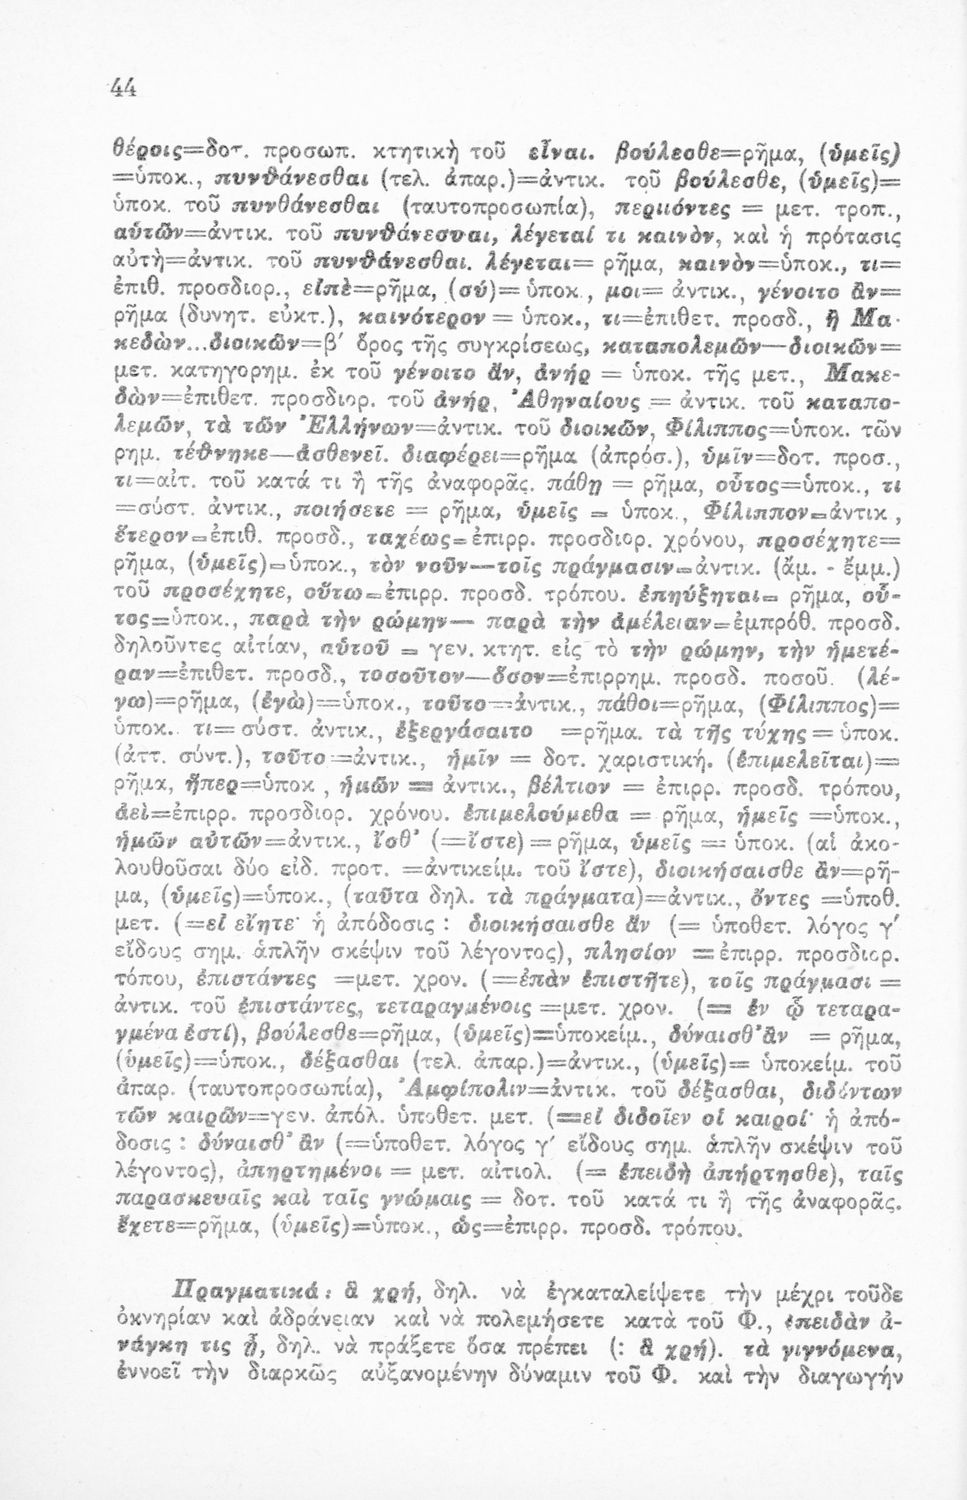 44
θέροις=δοτ. προσωπ. κτητικὴ τοῦ εἶναι. βούλεσθε=ρῆμα, (ὑμεῖς)
=ὑποκ., πυνθάνεσθαι (τελ. ἀπαρ.)=ἀντικ. τοῦ βούλεσθε, (ὑμεῖς)=
ὑποκ. τοῦ πυνθάνεσθαι (ταυτοπροσωπία), περιιόντες = μετ. τροπ.,
αὑτῶν=ἀντικ. τοῦ πυνθάνεσθαι, λέγεταί τι καινὸν, καὶ ἡ πρότασις
αὐτὴ=ἀντικ. τοῦ πυνθάνεσθαι. λέγεται= ρῆμα, καινὸν=ὑποκ., τι=
ἐπιθ. προσδιορ., εἰπὲ=ρῆμα, (σύ)= ὑποκ., μοι= ἀντικ., γένοιτο ἂν=
ρῆμα (δυνητ. εὐκτ.), καινότερον = ὑποκ., τι=ἐπιθετ. προσδ., ἢ Μα-
κεδὼν...διοικῶν=β′ ὅρος τῆς συγκρίσεως, καταπολεμῶν—διοικῶν=
μετ. κατηγορημ. ἐκ τοῦ γένοιτο ἂν, ἀνήρ = ὑποκ. τῆς μετ., Μακε-
δὼν=ἐπιθετ. προσδιορ. τοῦ ἀνήρ, Ἀθηναίους = ἀντικ. τοῦ καταπο-
λεμῶν, τὰ τῶν Ἑλλήνων=ἀντικ. τοῦ διοικῶν, Φίλιππος=ὑποκ. τῶν
ρημ. τέθνηκε—ἀσθενεῖ. διαφέρει=ρῆμα (ἀπρόσ.), ὑμῖν=δοτ. προσ.,
τι=αἰτ. τοῦ κατά τι ἢ τῆς ἀναφορᾶς. πάθῃ = ρῆμα, οὗτος=ὑποκ., τι
=σύστ. ἀντικ., ποιήσετε = ρῆμα, ὑμεῖς = ὑποκ., Φίλιππον=ἀντικ.,
ἕτερον=ἐπιθ. προσδ., ταχέως=ἐπιρρ. προσδιορ. χρόνου, προσέχητε=
ρῆμα, (ὑμεῖς)=ὑποκ., τὸν νοῦν—τοῖς πράγμασιν=ἀντικ. (ἄμ. - ἔμμ.)
τοῦ προσέχητε, οὕτω=ἐπιρρ. προσδ. τρόπου. ἐπηύξηται= ρῆμα, οὗ-
τος=ὑποκ., παρὰ τὴν ρώμην— παρὰ τὴν ἀμέλειαν=ἐμπρόθ. προσδ.
δηλοῦντες αἰτίαν, αὑτοῦ = γεν. κτητ. εἰς τὸ τὴν ρώμην, τὴν ἡμετέ-
ραν=ἐπιθετ. προσδ., τοσοῦτον—ὅσον=ἐπιρρημ. προσδ. ποσοῦ. (λέ-
γω)=ρῆμα, (ἐγὼ)=ὑποκ., τοῦτο=ἀντικ., πάθοι=ρῆμα, (Φίλιππος)=
ὑποκ. τι= σύστ. ἀντικ., ἐξεργάσαιτο =ρῆμα. τὰ τῆς τύχης = ὑποκ.
(ἀττ. σύντ.), τοῦτο=ἀντικ., ἡμῖν = δοτ. χαριστική. (ἐπιμελεῖται)=
ρῆμα, ἥπερ=ὑποκ., ἡμῶν = ἀντικ., βέλτιον = ἐπιρρ. προσδ. τρόπου,
ἀεὶ=ἐπιρρ. προσδιορ. χρόνου. ἐπιμελούμεθα = ρῆμα, ἡμεῖς =ὑποκ.,
ἡμῶν αὐτῶν=ἀντικ., ἴσθ' (=ἴστε) = ρῆμα, ὑμεῖς = ὑποκ. (αἱ ἀκο-
λουθοῦσαι δύο εἰδ. προτ. =ἀντικείμ. τοῦ ἴστε), διοικήσαισθε ἂν=ρῆ-
μα, (ὑμεῖς)=ὑποκ., (ταῦτα δηλ. τὰ πράγματα)=ἀντικ., ὄντες =ὑποθ.
μετ. (=εἰ εἴητε· ἡ ἀπόδοσις : διοικήσαισθε ἂν (= ὑποθετ. λόγος γ′
εἴδους σημ. ἁπλῆν σκέψιν τοῦ λέγοντος), πλησίον = ἐπιρρ. προσδιορ.
τόπου, ἐπιστάντες =μετ. χρον. (=ἐπὰν ἐπιστῆτε), τοῖς πράγμασι =
ἀντικ. τοῦ ἐπιστάντες, τεταραγμένοις =μετ. χρον. (= ἐν ᾧ τεταρα-
γμένα ἐστί), βούλεσθε=ρῆμα, (ὑμεῖς)=ὑποκείμ., δύναισθ' ἂν = ρῆμα,
(ὑμεῖς)=ὑποκ., δέξασθαι (τελ. ἀπαρ.)=ἀντικ., (ὑμεῖς)= ὑποκείμ. τοῦ
ἀπαρ. (ταυτοπροσωπία), Ἀμφίπολιν=ἀντικ. τοῦ δέξασθαι, διδόντων
τῶν καιρῶν=γεν. ἀπόλ. ὑποθετ. μετ. (=εἰ διδοῖεν οἱ καιροί· ἡ ἀπό-
δοσις : δύναισθ' ἂν (=ὑποθετ. λόγος γ′ εἴδους σημ. ἁπλῆν σκέψιν τοῦ
λέγοντος), ἀπηρτημένοι = μετ. αἰτιολ. (= ἐπειδὴ ἀπήρτησθε), ταῖς
παρασκευαῖς καὶ ταῖς γνώμαις = δοτ. τοῦ κατά τι ἢ τῆς ἀναφορᾶς.
ἔχετε=ρῆμα, (ὑμεῖς)=ὑποκ., ὡς=ἐπιρρ. προσδ. τρόπου.
Πραγματικά: ἃ χρή, δηλ. νὰ ἐγκαταλείψετε τὴν μέχρι τοῦδε
ὀκνηρίαν καὶ ἀδράνειαν καὶ νὰ πολεμήσετε κατὰ τοῦ Φ., ἐπειδὰν ἀ-
νάγκη τις ᾖ, δηλ. νὰ πράξετε ὅσα πρέπει (: ἃ χρή). τὰ γιγνόμενα,
ἐννοεῖ τὴν διαρκῶς αὐξανομένην δύναμιν τοῦ Φ. καὶ τὴν διαγωγήν